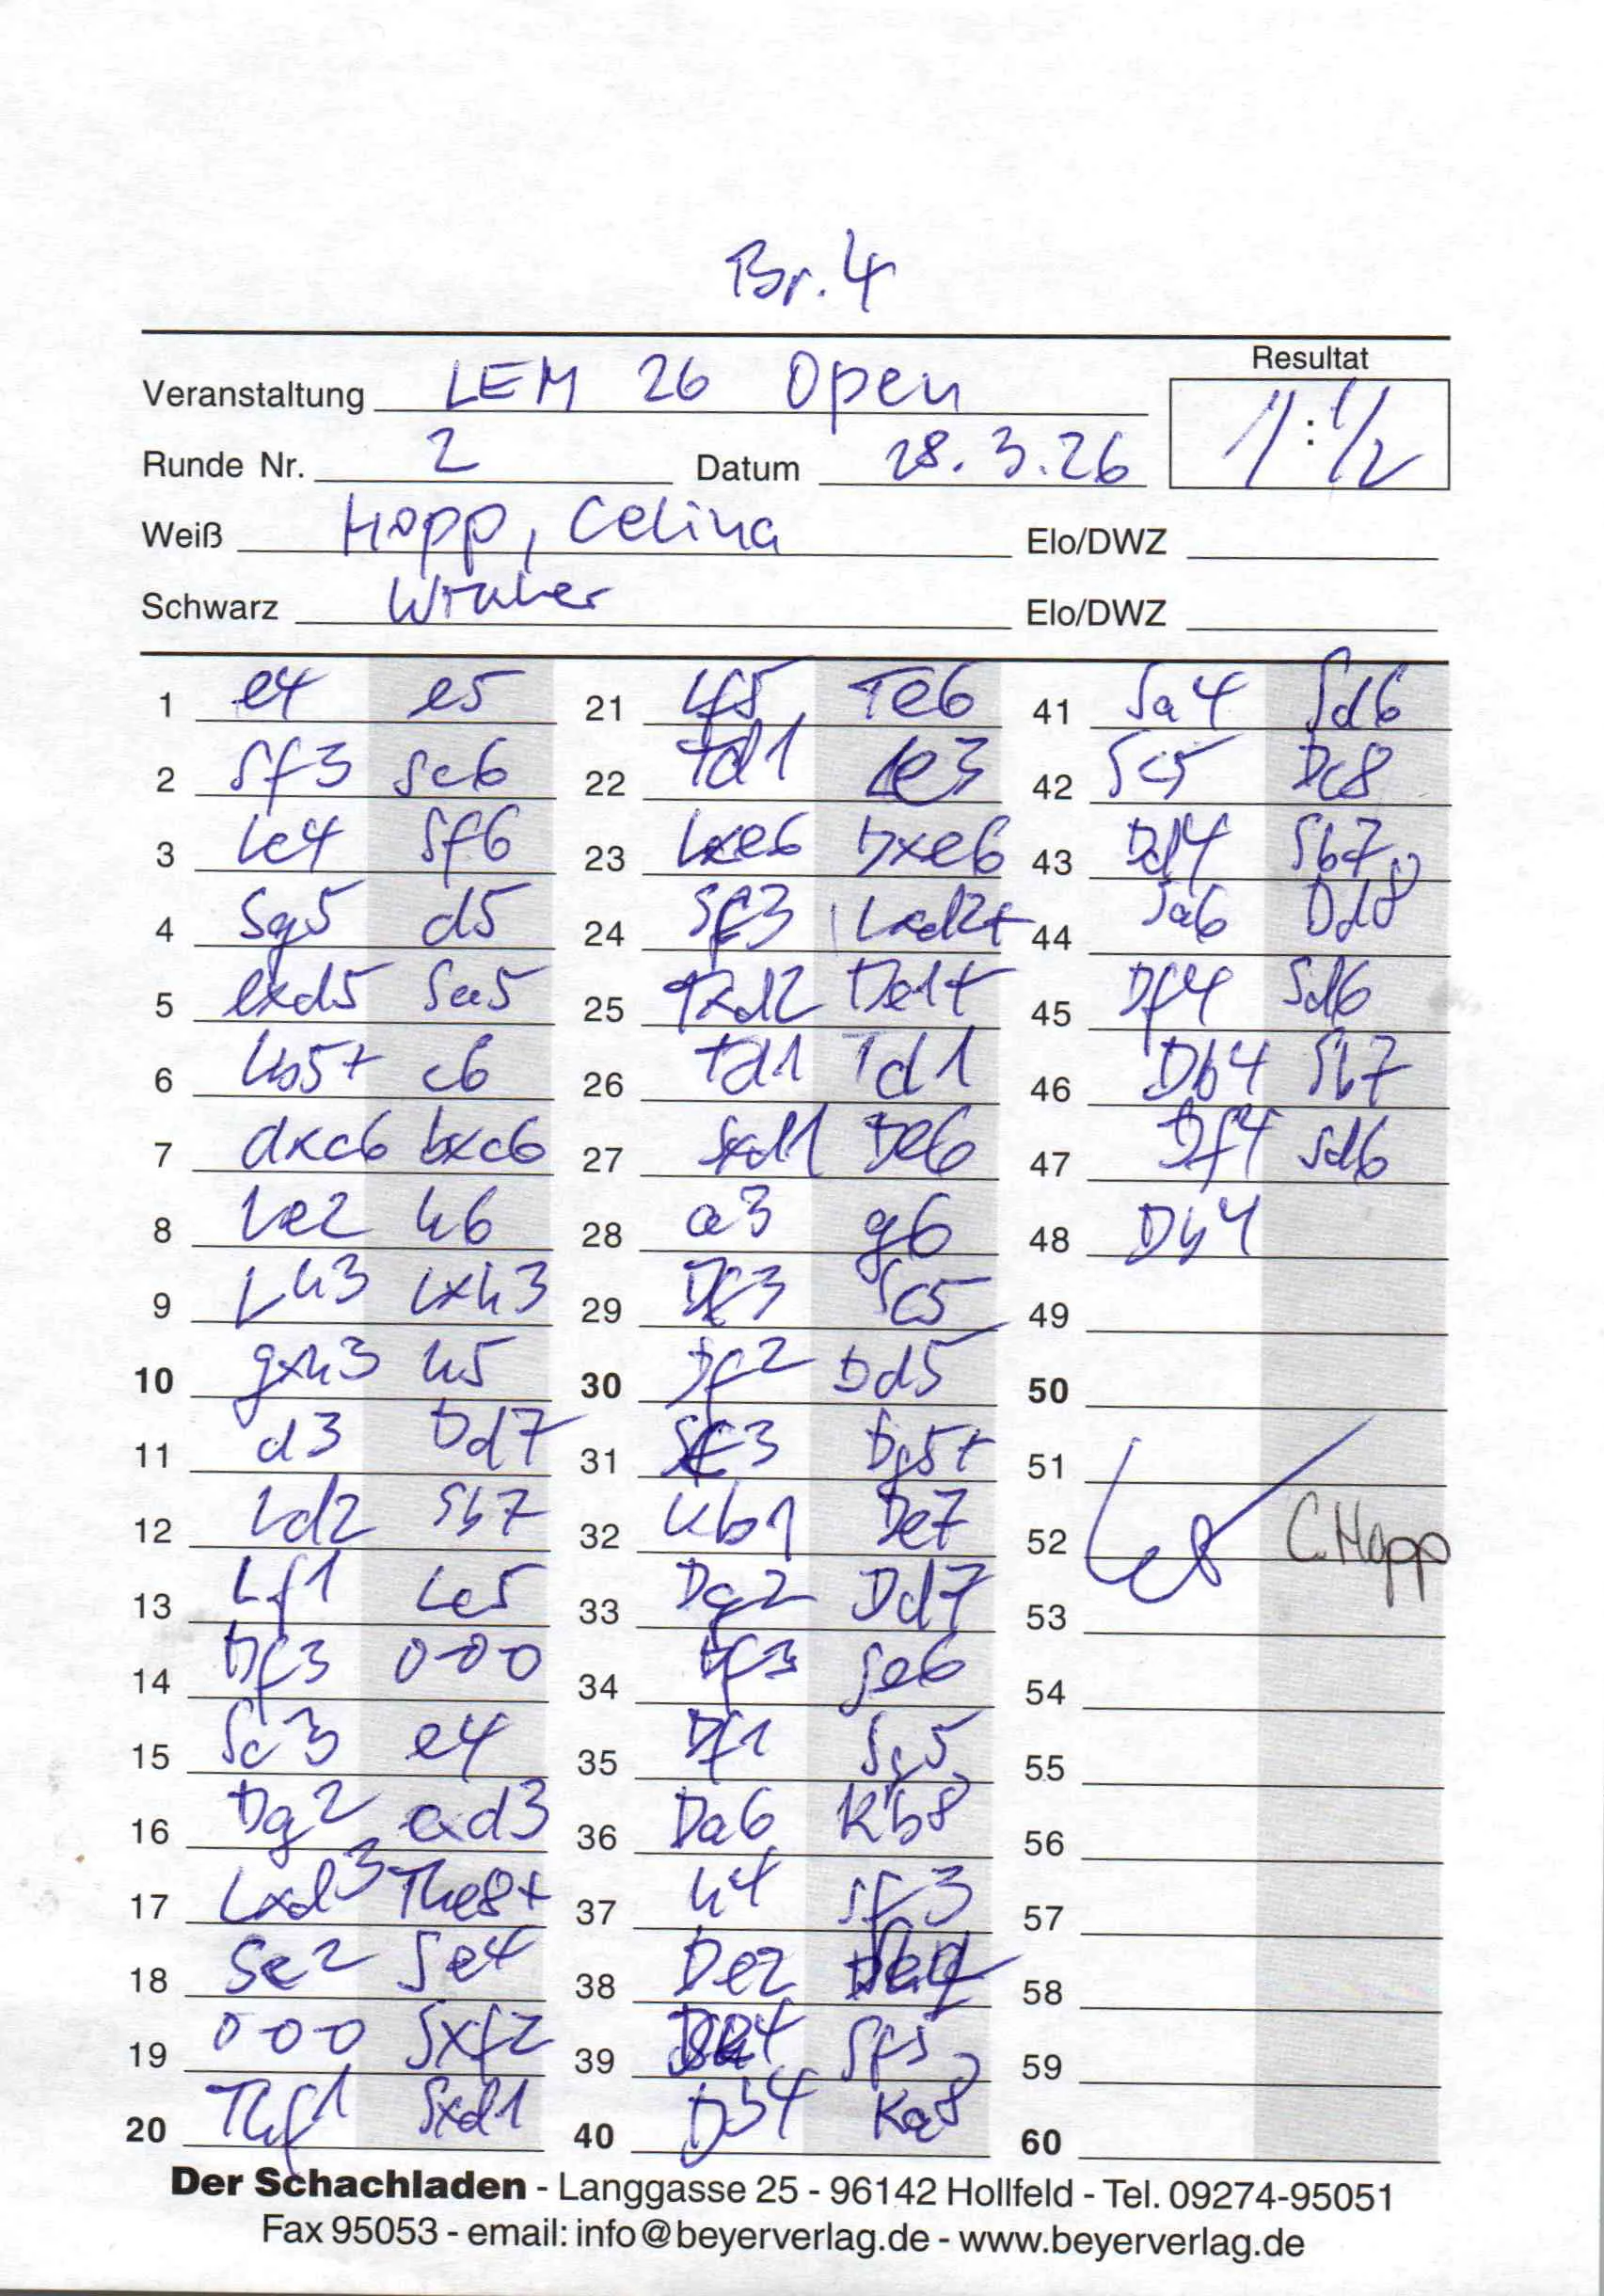 Br. 4
Resultat
Veranstaltung LEM 26 Open
1 : 1/2
Runde Nr. 2 Datum 28.3.26
Weiß Hopp, Celina Elo/DWZ
Schwarz Elo/DWZ
1 e4 e5 21 Lf5 Te6 41 Sa4 Sd6
2 Sf3 Sc6 22 Td1 Le3 42 Sc5 Dc8
3 Lc4 Sf6 23 Lxe6 Dxe6 43 Dd4 Sb7
4 Sg5 d5 24 Sc3 Lxd2+ 44 Sa6 Dd8
5 exd5 Sa5 25 Txd2 De1+ 45 Df4 Sd6
6 Lb5+ c6 26 Td1 Td1 46 Db4 Sb7
7 dxc6 bxc6 27 Sxd1 De6 47 Df4 Sd6
8 Le2 h6 28 a3 g6 48 Db4
9 Lh3 Lxh3 29 Dc3 Sc5 49
10 gxh3 h5 30 Df2 Dd5 50
11 d3 Dd7 31 Sc3 Dg5+ 51
12 Ld2 Sb7 32 Kb1 De7 52 C. Hopp
13 Lf1 Lc5 33 Dg2 Dd7 53
14 Df3 0-0-0 34 Df3 Se6 54
15 Sc3 e4 35 Df1 Sg5 55
16 Dg2 exd3 36 Da6 Kb8 56
17 Lxd3 The8+ 37 h4 Sf3 57
18 Se2 Se4 38 De2 58
19 0-0-0 Sxf2 39 59
20 Thf1 Sxd1 40 Db4 Ka8 60
Der Schachladen - Langgasse 25 - 96142 Hollfeld - Tel. 09274-95051
Fax 95053 - email: info@beyerverlag.de - www.beyerverlag.de